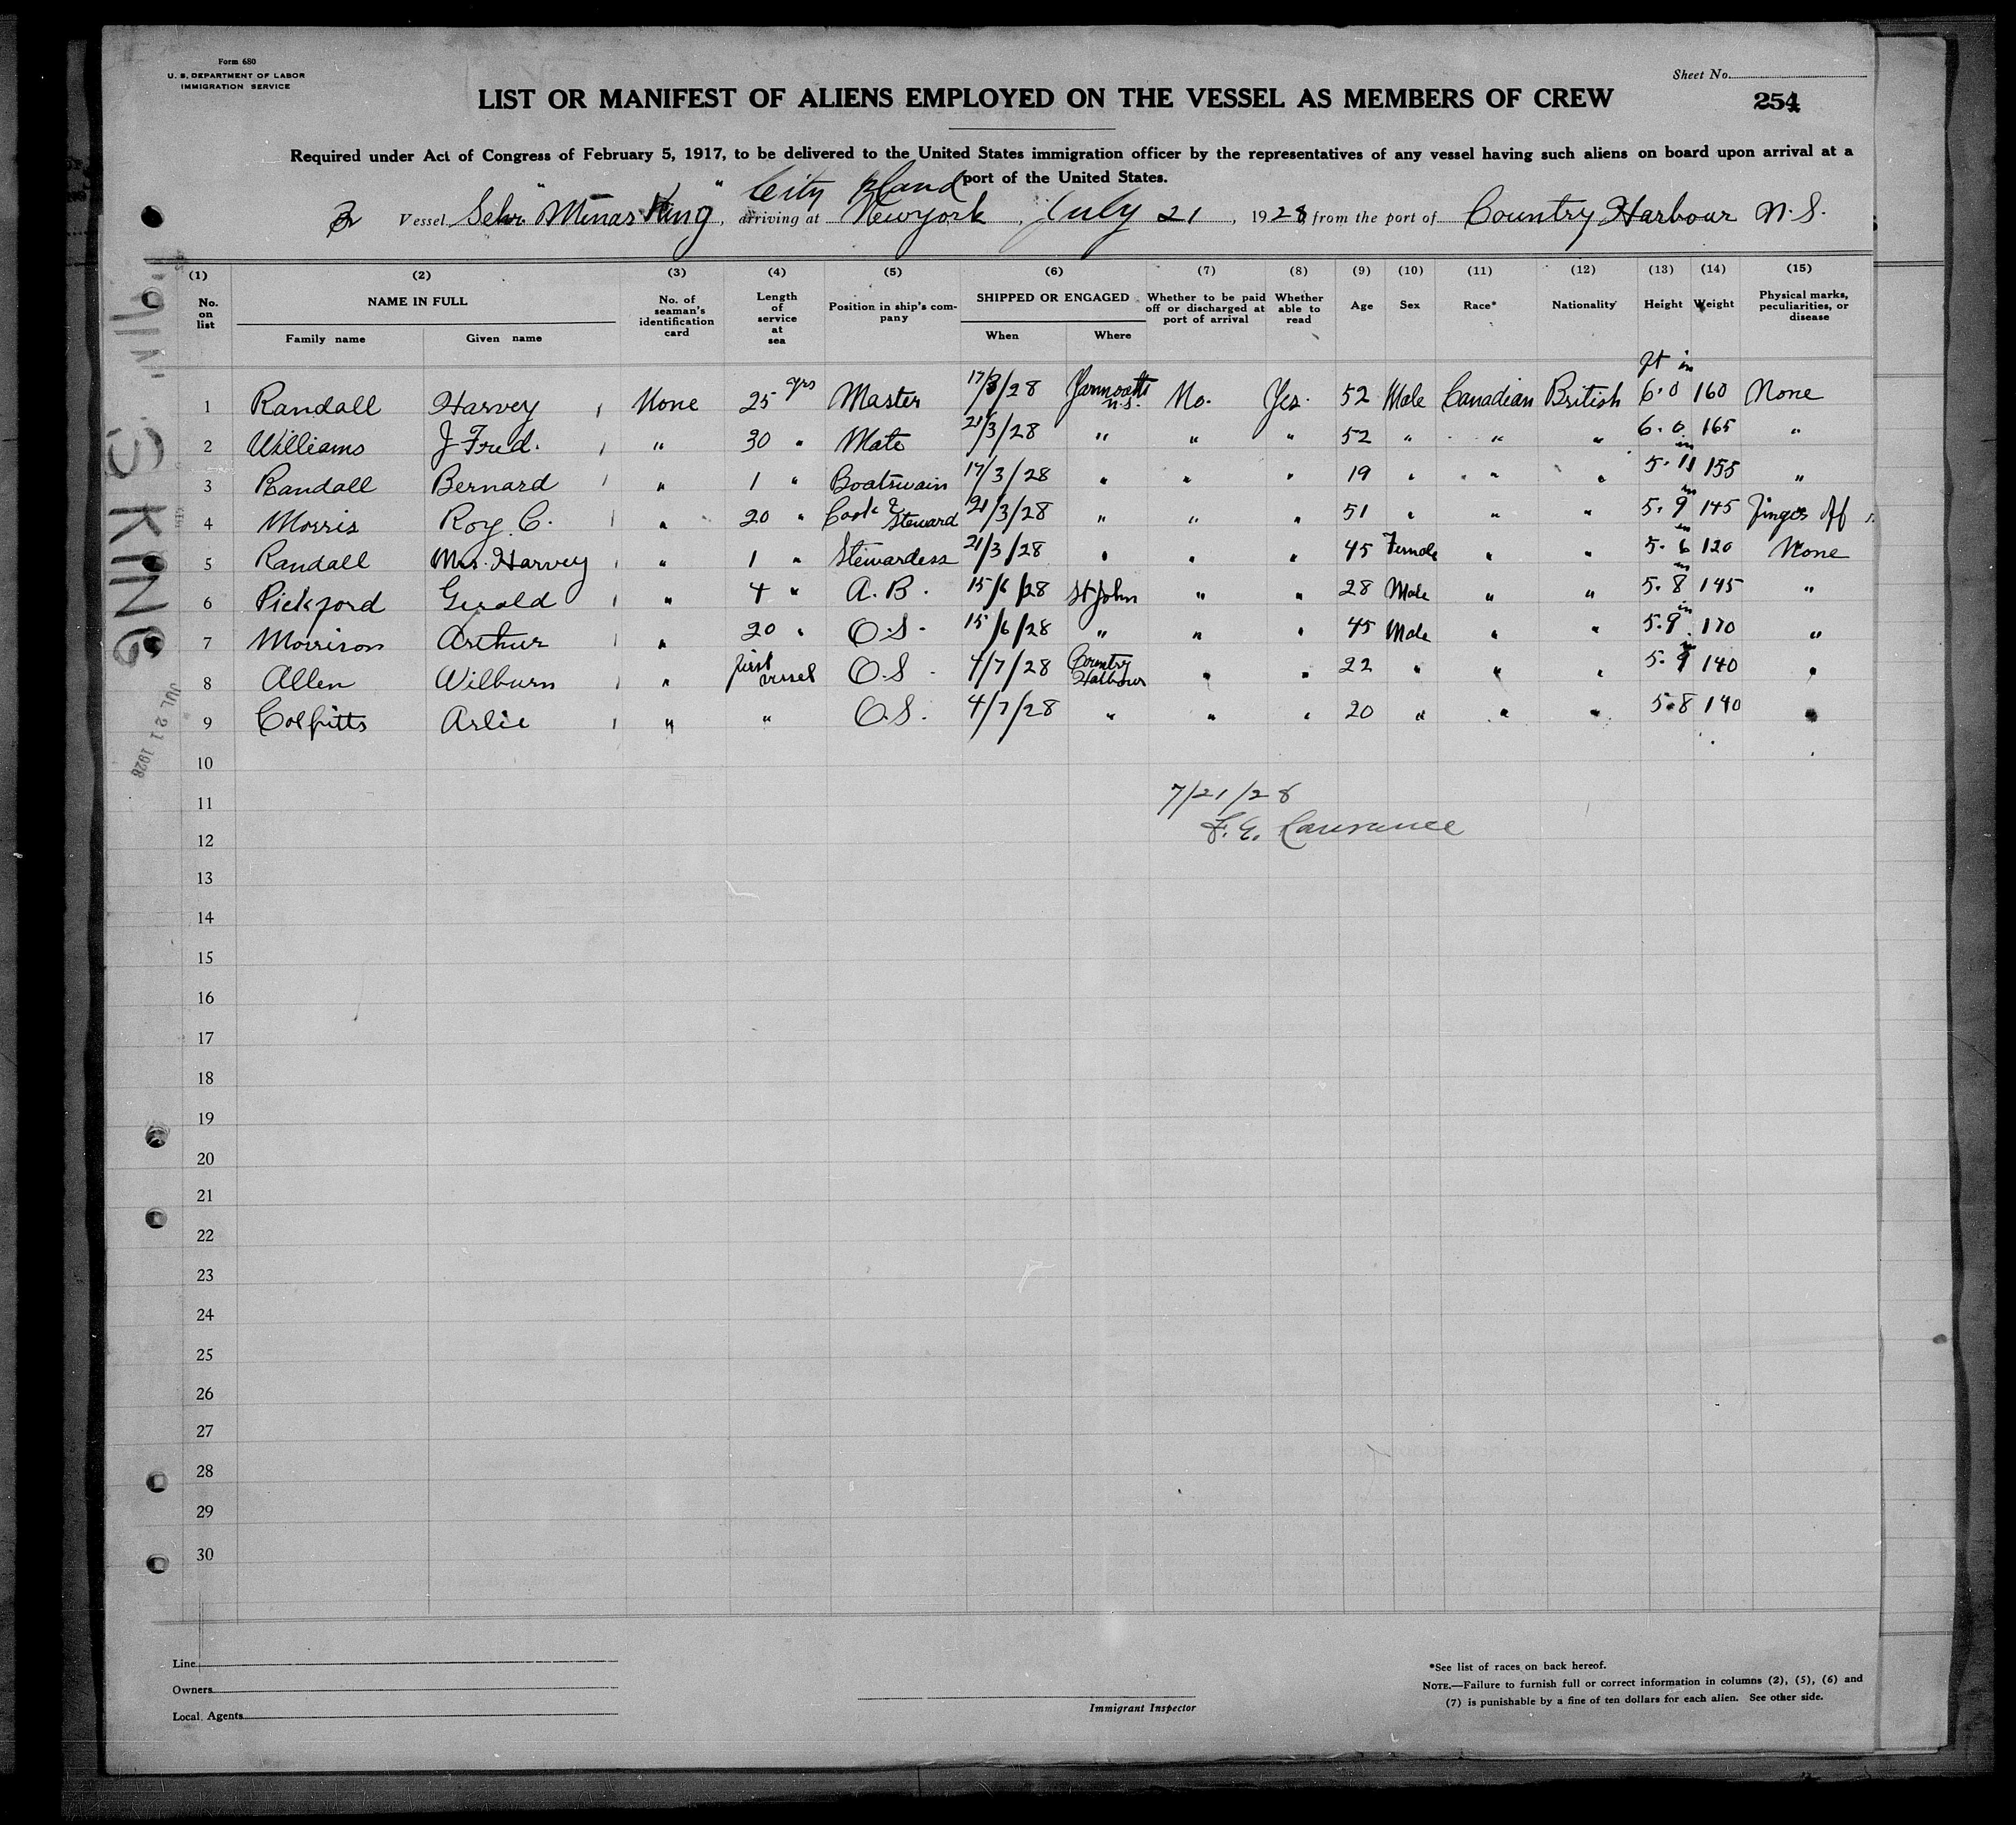 Form 680
U. S. DEPARTMENT OF LABOR
IMMIGRATION SERVICE
Sheet No.
LIST OR MANIFEST OF ALIENS EMPLOYED ON THE VESSEL AS MEMBERS OF CREW
254
Required under Act of Congress of February 5, 1917, to be delivered to the United States immigration officer by the representatives of any vessel having such aliens on board upon arrival at a
port of the United States.
City Island
Vessel Schr "Minas King", arriving at Newyork, July 21, 1928 from the port of Country Harbour N.S.
(1) (2) (3) (4) (5) (6) (7) (8) (9) (10) (11) (12) (13) (14) (15)
No. on list NAME IN FULL Family name Given name No. of seaman's identification card Length of service at sea Position in ship's company SHIPPED OR ENGAGED When Where Whether to be paid off or discharged at port of arrival Whether able to read Age Sex Race* Nationality Height Weight Physical marks, peculiarities, or disease
ft in
1 Randall Harvey None 25 yrs Master 17/3/28 Yarmouth N.S. No. Yes. 52 Male Canadian British 6.0 160 None
2 Williams J Fred. " 30 " Mate 21/3/28 " " " 52 " " " 6.0 165 "
3 Randall Bernard " 1 " Boatswain 17/3/28 " " " 19 " " " 5.11 155 "
4 Morris Roy C. " 20 " Cook & Steward 21/3/28 " " " 51 " " " 5.9 145 Finger Off
5 Randall Mrs. Harvey " 1 " Stewardess 21/3/28 " " " 45 Female " " 5.6 120 None
6 Pickford Gerald " 4 " A.B. 15/6/28 St John " " 28 Male " " 5.8 145 "
7 Morrison Arthur " 20 " O.S. 15/6/28 " " " 45 Male " " 5.9 170 "
8 Allen Wilburn " first vessel O.S. 4/7/28 Country Harbour " " 22 " " " 5.9 140 "
9 Colpitts Arlie " " O.S. 4/7/28 " " " 20 " " " 5.8 140 "
10
11 7/21/28
12 F. E. Lawrance
13
14
15
16
17
18
19
20
21
22
23
24
25
26
27
28
29
30
S KING
JUL 21 1928
Line
Owners
Local Agents
Immigrant Inspector
*See list of races on back hereof.
NOTE.—Failure to furnish full or correct information in columns (2), (5), (6) and
(7) is punishable by a fine of ten dollars for each alien. See other side.